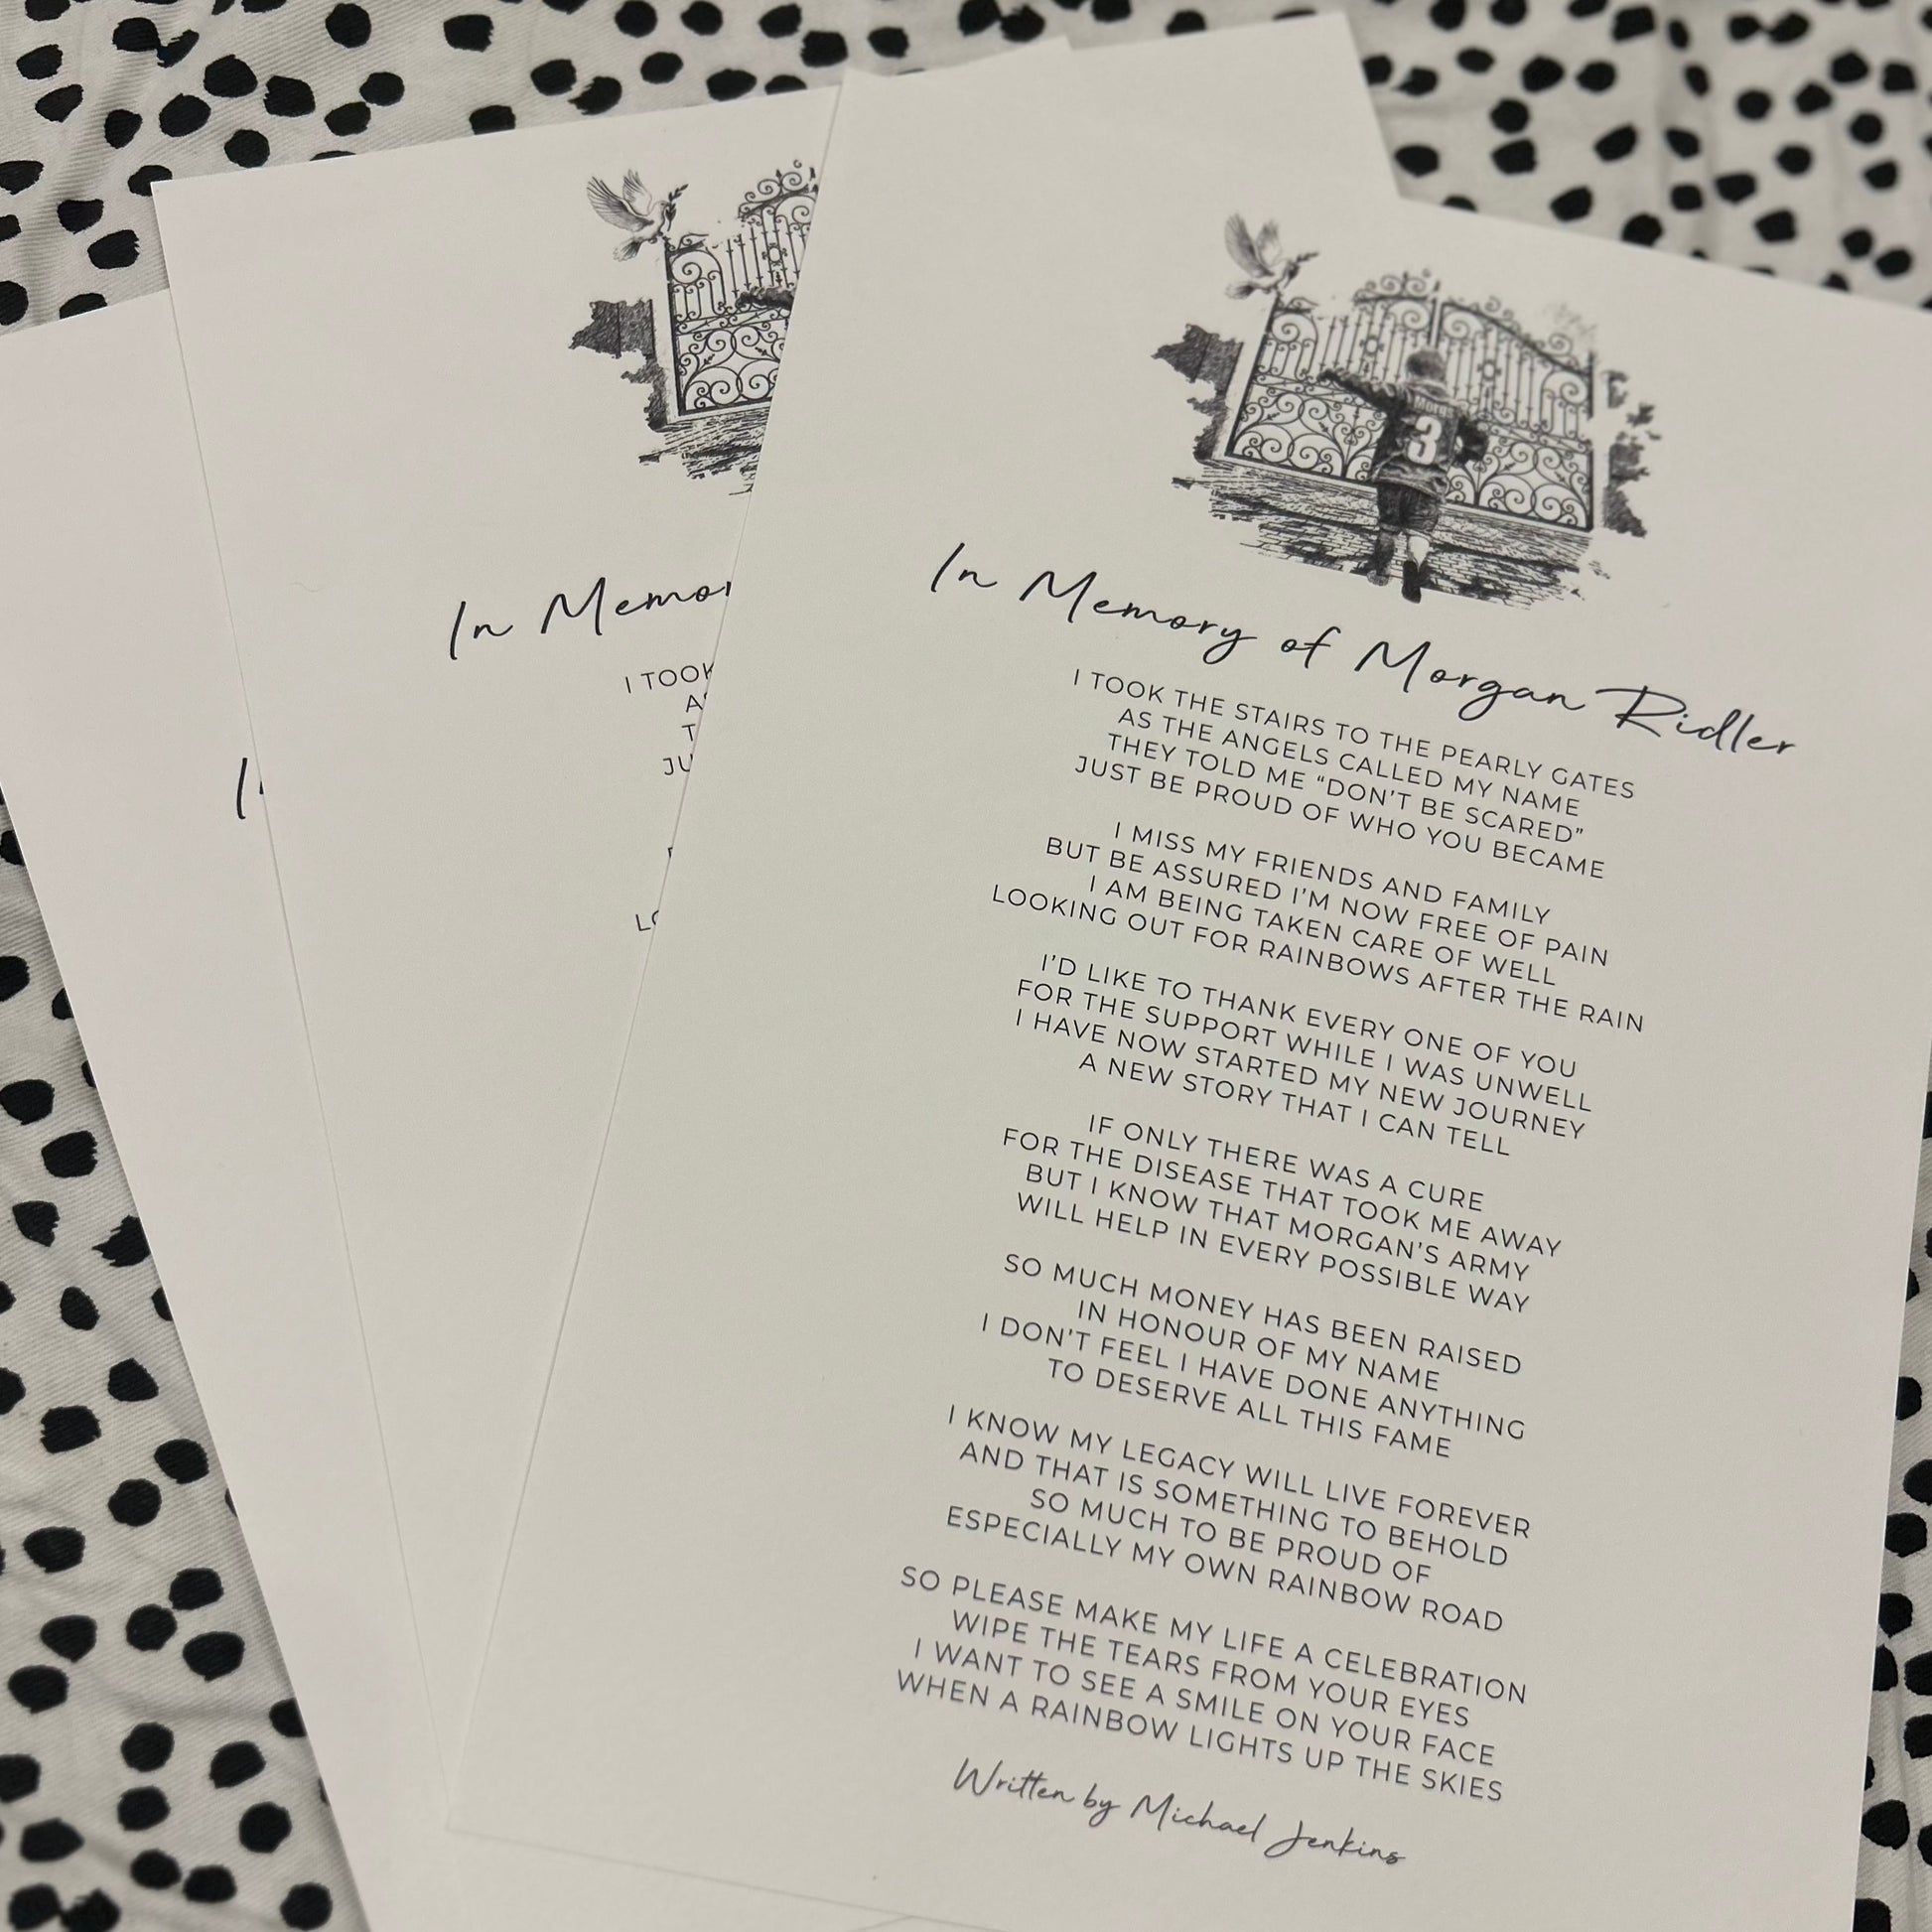 In Memory of Morgan Ridler
I TOOK THE STAIRS TO THE PEARLY GATES
AS THE ANGELS CALLED MY NAME
THEY TOLD ME “DON’T BE SCARED”
JUST BE PROUD OF WHO YOU BECAME
I MISS MY FRIENDS AND FAMILY
BUT BE ASSURED I’M NOW FREE OF PAIN
I AM BEING TAKEN CARE OF WELL
LOOKING OUT FOR RAINBOWS AFTER THE RAIN
I’D LIKE TO THANK EVERY ONE OF YOU
FOR THE SUPPORT WHILE I WAS UNWELL
I HAVE NOW STARTED MY NEW JOURNEY
A NEW STORY THAT I CAN TELL
IF ONLY THERE WAS A CURE
FOR THE DISEASE THAT TOOK ME AWAY
BUT I KNOW THAT MORGAN’S ARMY
WILL HELP IN EVERY POSSIBLE WAY
SO MUCH MONEY HAS BEEN RAISED
IN HONOUR OF MY NAME
I DON’T FEEL I HAVE DONE ANYTHING
TO DESERVE ALL THIS FAME
I KNOW MY LEGACY WILL LIVE FOREVER
AND THAT IS SOMETHING TO BEHOLD
SO MUCH TO BE PROUD OF
ESPECIALLY MY OWN RAINBOW ROAD
SO PLEASE MAKE MY LIFE A CELEBRATION
WIPE THE TEARS FROM YOUR EYES
I WANT TO SEE A SMILE ON YOUR FACE
WHEN A RAINBOW LIGHTS UP THE SKIES
Written by Michael Jenkins
3
In Memor
I TOOK